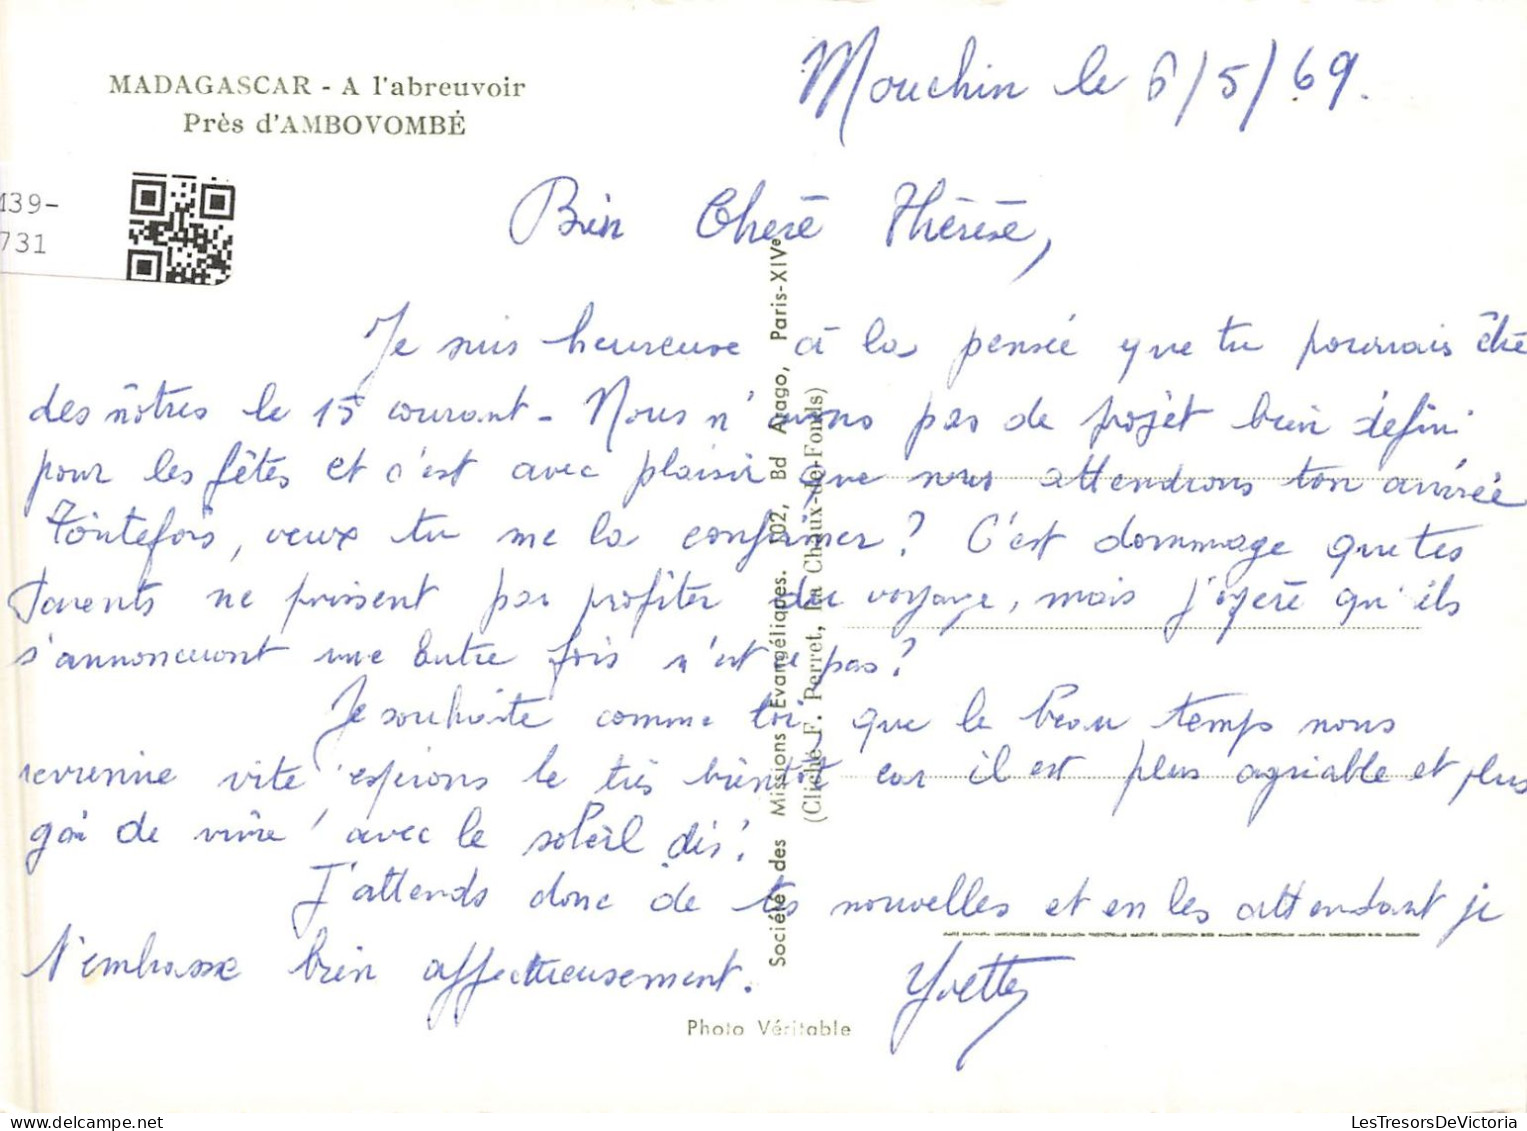 MADAGASCAR - A l'abreuvoir
Près d'AMBOVOMBÉ
M39-
731
Mouchin le 6/5/69.
Bien Chère Thérèse,
Je suis heureuse à la pensée que tu pourrais être
des nôtres le 15 courant - Nous n'avons pas de projet bien défini
pour les fêtes et c'est avec plaisir que nous attendrons ton arrivée
Toutefois, veux tu me la confirmer ? C'est dommage que tes
Parents ne puissent pas profiter du voyage, mais j'espère qu'ils
s'annonceront une autre fois n'est ce pas ?
Je souhaite comme toi, que le beau temps nous
revienne vite espérons le très bientôt car il est plus agréable et plus
gai de vivre avec le soleil dis !
J'attends donc de tes nouvelles et en les attendant je
t'embrasse bien affectueusement. Yvette
Société des Missions Evangéliques. 102, Bd Arago, Paris-XIVe
(Cliché F. Perret, La Chaux-de-Fonds)
Photo Véritable
LesTresorsDeVictoria.com